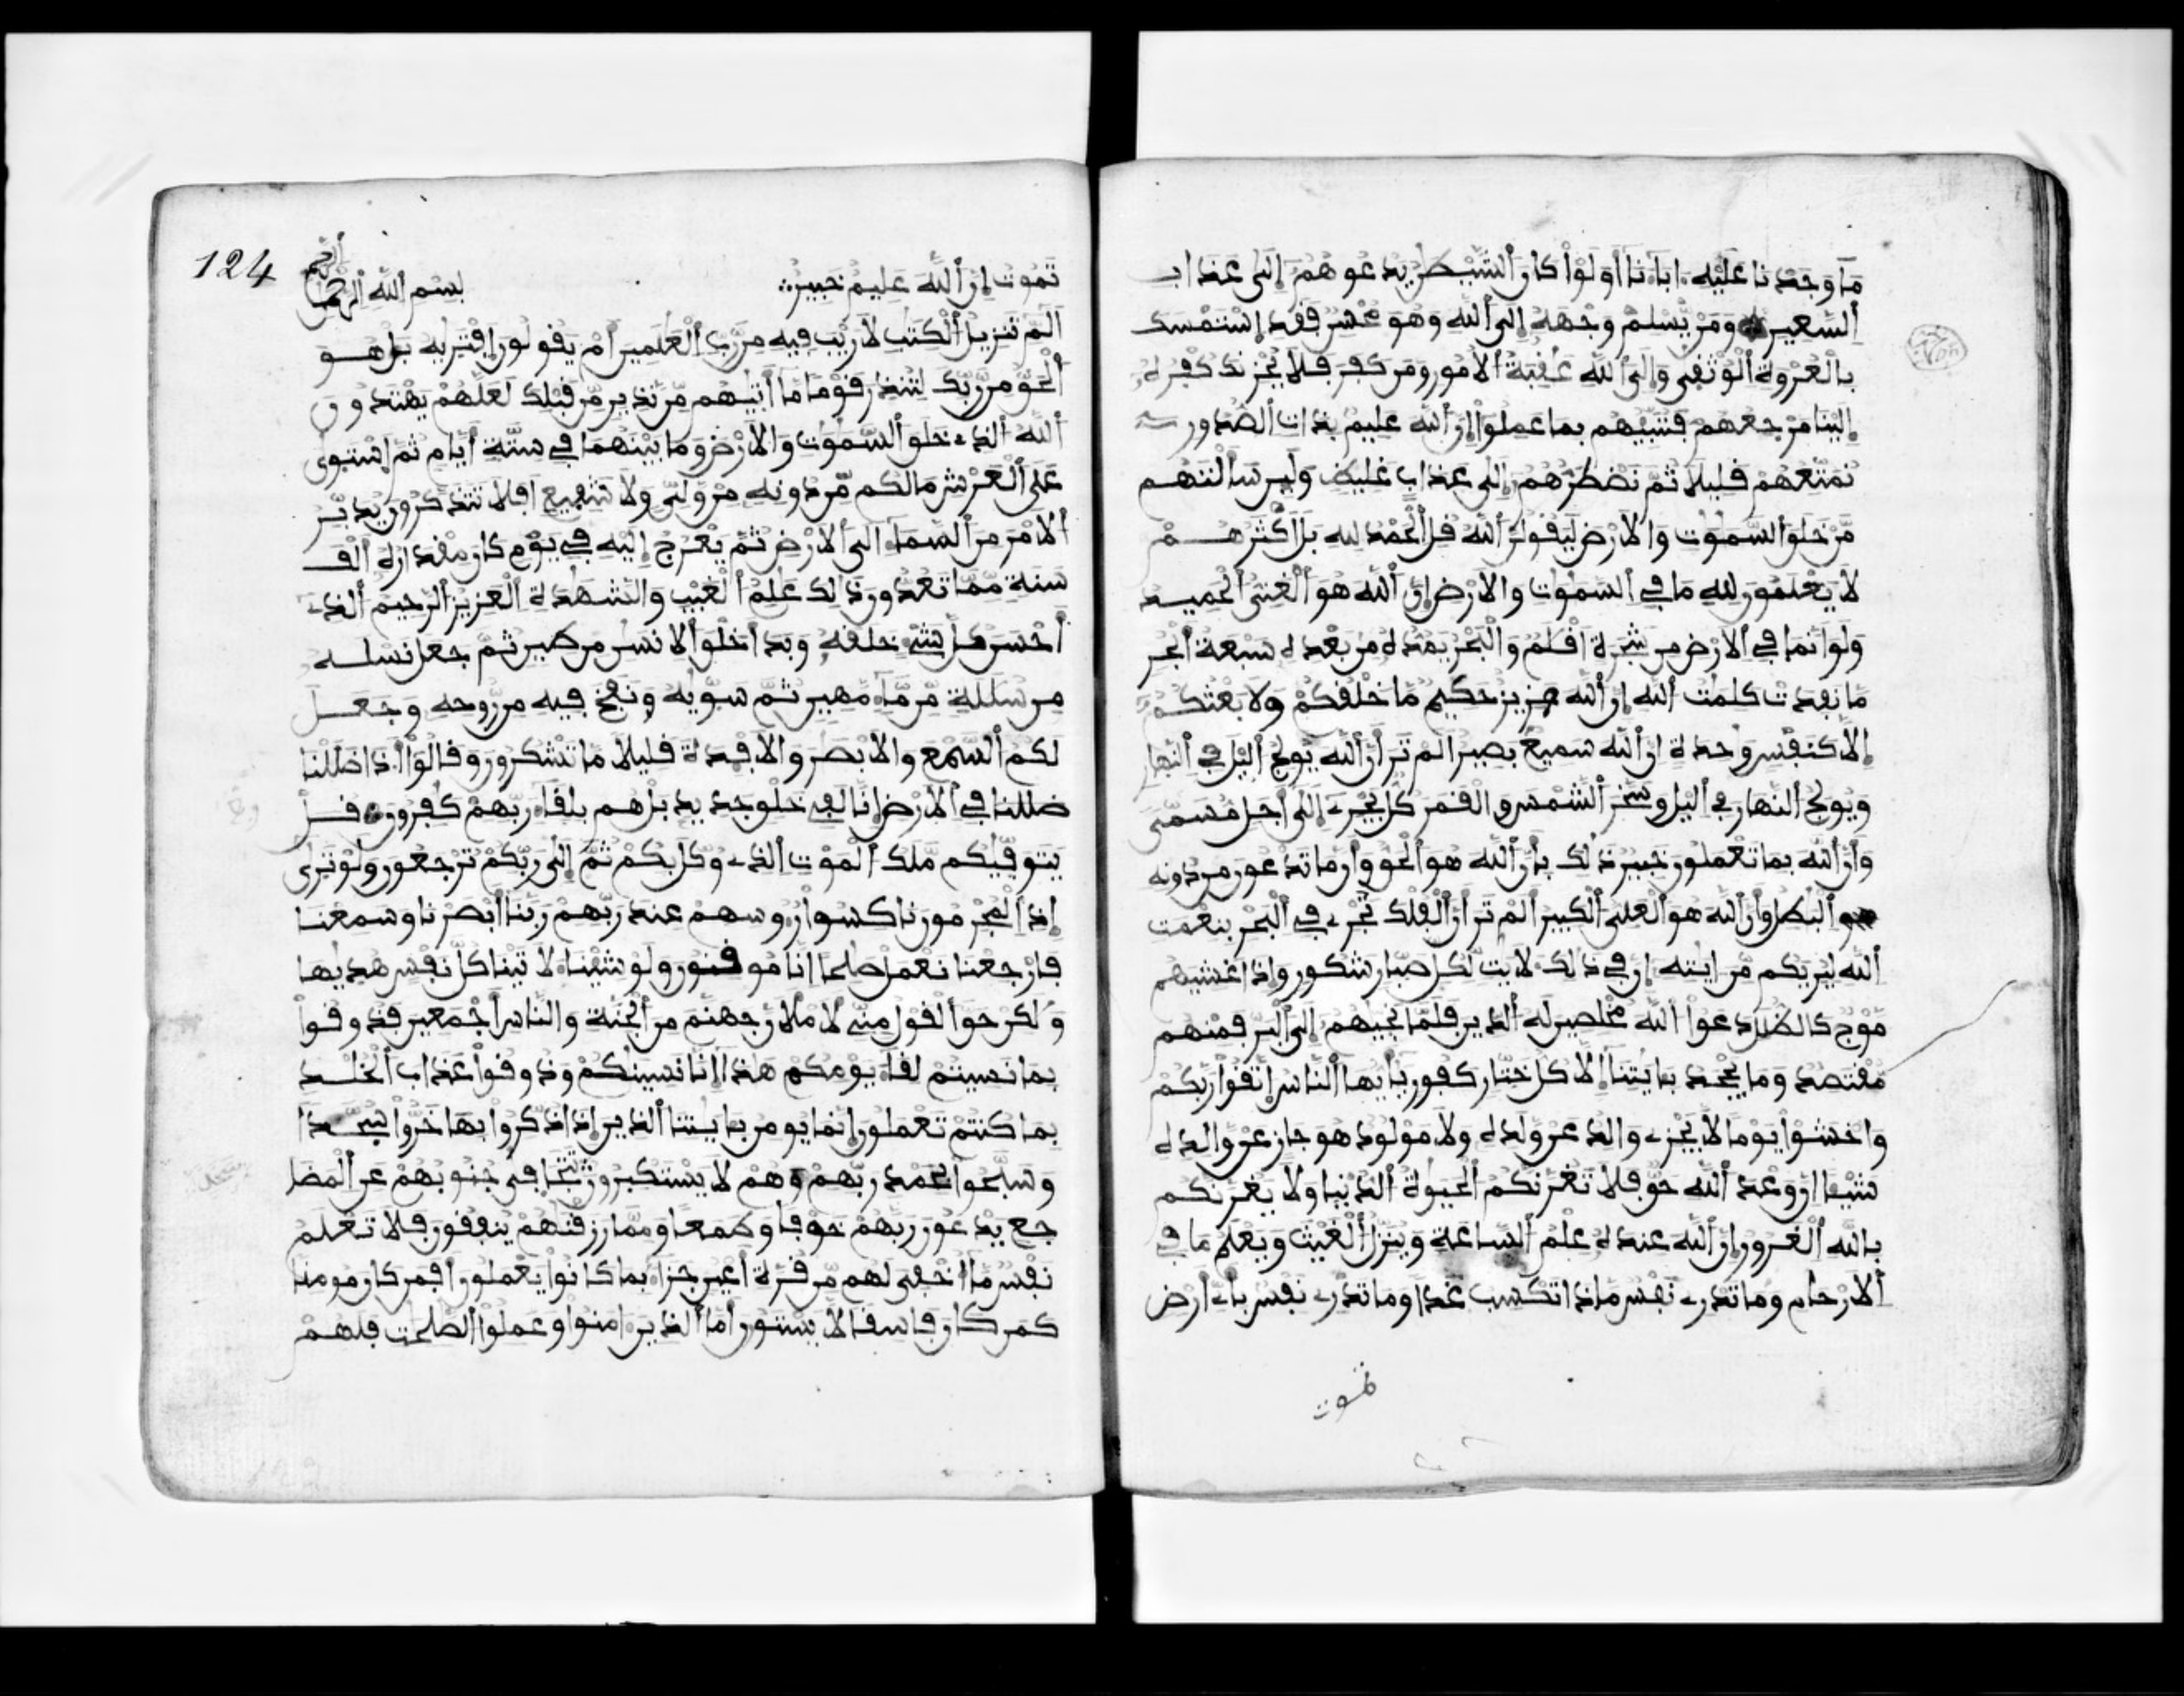 ما وجدنا عليه ءاباءنا أولوا كان الشيطن يدعوهم إلى عذاب
السعير ومن يسلم وجهه إلى الله وهو محسن فقد إستمسك
بالعروة الوثقى وإلى الله عقبة الامور ومن كفر فلا يحزنك كفره
إلينا مرجعهم فننبيهم بما عملوا إن الله عليم بذات الصدور
نمتعهم فليلا ثم نضطرهم إلى عذاب غليظ ولين سألتهم
من خلق السموت والارض ليقولن الله قل الحمد لله بل اكثرهم
لا يعلمون لله ما في السموت والارض إن الله هو الغني الحميد
ولو انما في الارض من شجرة اقلم والبحر يمده من بعده سبعة أبحر
ما نفدت كلمت الله إن الله عزيز حكيم ما خلقكم ولا بعثكم
إلا كنفس واحدة ان الله سميع بصير الم تر أن الله يولج اليل في النهار
ويولج النهار في اليل وسخر الشمس والقمر كل يجرے إلى أجل مسمى
وأن الله بما تعملون خبير ذلك بأن الله هو الحق وأن ما تدعون من دونه
البطل وأن الله هو العلي الكبير ألم تر أن الفلك تجرے في البحر بنعمت
الله ليريكم من ايته إن في ذلك لايت لكل صبار شكور وإذا غشيهم
موج كالظلل دعوا الله مخلصين له الذين فلما نجيهم إلى البر فمنهم
مقتصد وما يجحد بءايتنا إلا كل ختار كفور يأيها الناس إتقوا ربكم
واخشوا يوما لا يجزے والد عن ولده ولا مولود هو جاز عن والده
شيئا ان وعد الله حق فلا تغرنكم الحيوة الدنيا ولا يغرنكم
بالله الغرور إن الله عنده علم الساعة وينزل الغيث ويعلم ما في
الارحام وما تدرے نفس ماذا تكسب غدا وما تدرے نفس بأے أرض
تموت
124
تموت إن الله عليم خبير
بسم الله الرحمن
الرحيم
الم تنزيل الكتب لا ريب فيه من رب العلمين أم يقولون إفتريه بل هو
الحق من ربك لتنذر قوما ما أتيهم من نذير من قبلك لعلهم يهتدون
الله الذے خلق السموت والارض وما بينهما في ستة أيام ثم إستوى
على العرش ما لكم من دونه من ولي ولا شفيع افلا تتذكرون يدبر
الامر من السماء الى الارض ثم يعرج إليه في يوم كان مقداره ألف
سنة مما تعدون ذلك علم الغيب والشهدة العزيز الرحيم الذے
أحسن كل شے خلقه وبدأ خلق الانسن من طين ثم جعل نسله
من سللة من ماء مهين ثم سويه ونفخ فيه من روحه وجعل
لكم السمع والابصر والافدة قليلا ما تشكرون وقالوا أءذا ضللنا
ضللنا في الارض إنا لفے خلق جديد بل هم بلقاء ربهم كفرون قل
يتوفيكم ملك الموت الذے وكل بكم ثم إلى ربكم ترجعون ولو ترى
إذ المجرمون ناكسوا رءوسهم عند ربهم ربنا ابصرنا وسمعنا
فارجعنا نعمل صلحا انا موقنون ولو شينا لاتينا كل نفس هديها
ولكن حق القول منے لاملان جهنم من الجنة والناس أجمعين فذوقوا
بما نسيتم لقاء يومكم هذا إنا نسينكم وذوقوا عذاب الخلد
بما كنتم تعملون إنما يومن بءايتنا الذين إذا ذكروا بها خروا سجدا
وسبحوا بحمد ربهم وهم لا يستكبرون تتجافى جنوبهم عن المضا
جع يدعون ربهم خوفا وطمعا ومما رزقنهم ينفقون فلا تعلم
نفس ما اخفى لهم من قرة أعين جزاء بما كانوا يعملون افمن كان مومنا
كمن كان فاسقا لا يستون أما الذين ءامنوا وعملوا الصلحت فلهم